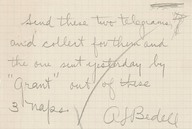 Send these two telegrams
and collect for them and
the one sent yesterday by
"Grant" out of these
3 snaps
A J Bedell